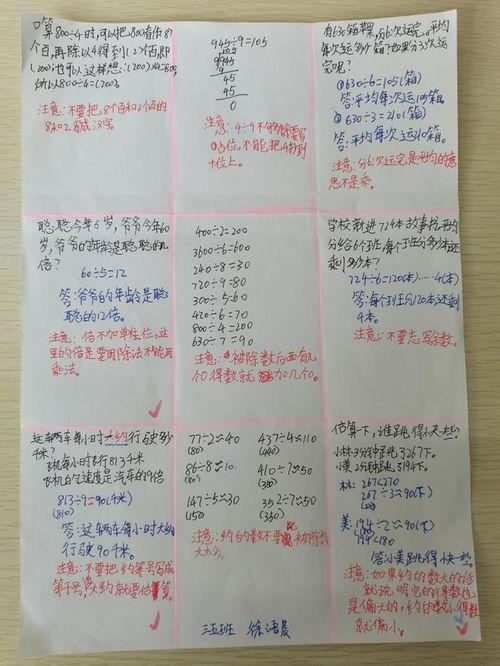 口算800÷4时,可以把800看作8个
百,再除以4得到(2)个百即
(200)也可以这样想:(200)×4=800,
所以800÷4=(200)。
注意:不要把8个百和2个百的
8和2写成汉字。
945÷9=105
945
9
45
45
0
注意:4÷9不够除要写
0占位,不能把4抄到
十位上。
有630箱苹果,分6次运完。平均
每次运多少箱?如果分3次运
完呢?
①630÷6=105(箱)
答:平均每次运105箱。
②630÷3=210(箱)
答:平均每次运210箱。
注意:分6次运完是平均的意
思不是乘。
聪聪今年5岁,爷爷今年60
岁,爷爷的年龄是聪聪的几
倍?
60÷5=12
答:爷爷的年龄是聪
聪的12倍。
注意:倍不加单位,这
里的倍是要用除法不能用
乘法。
400÷2=200
3600÷6=600
240÷8=30
720÷9=80
300÷5=60
420÷6=70
800÷4=200
630÷7=90
注意:被除数后面有几
个0得数就加几个0。
学校新进724本故事书,平均
分给6个班,每个班分多少本还
剩多少本?
724÷6=120(本)……4(本)
答:每个班分120本还剩
4本。
注意:不要忘写余数。
这辆汽车每小时大约行驶多少
千米?
飞机每小时飞行813千米
飞机的速度是汽车的9倍
813÷9≈90(千米)
(810)
答:这辆车每小时大约
行驶90千米。
注意:不要把约等号写成
等于号,大约就要估算。
77÷2≈40
(80)
437÷4≈110
(440)
86÷8≈10
(80)
410÷7≈50
147÷5≈30
(150)
352÷7≈50
(350)
注意:约的数不要比被除数
大太多。
估算一下,谁跳得快一些?
小林3分钟跳了267下。
小美2分钟跳了194下。
林:267<270
267÷3≈90(下)
美:194÷2≈90(下)
194>180
答:小美跳得快一些。
注意:如果约的数大的话
就说明它的得数也
是偏大的,约的数小,得数
就偏小。
三五班 徐语晨